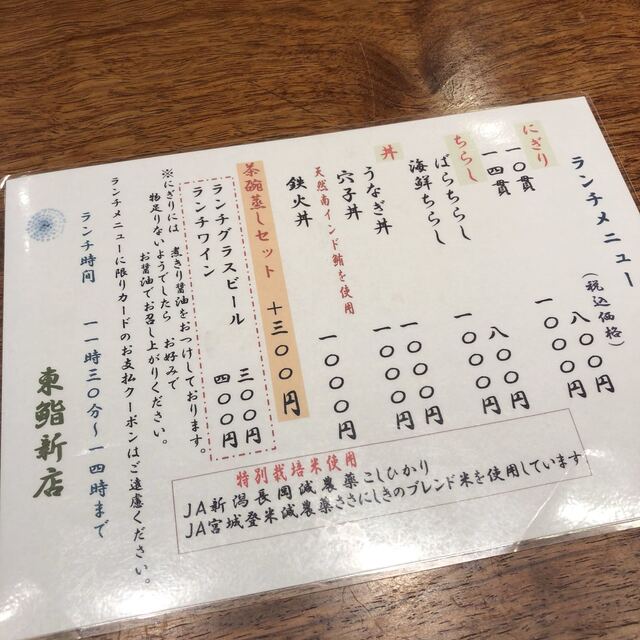 ランチメニュー
(税込価格)
にぎり
一〇貫 八〇〇円
一四貫 一〇〇〇円
ちらし
ばらちらし 八〇〇円
海鮮ちらし 一〇〇〇円
丼
うなぎ丼 一〇〇〇円
穴子丼 一〇〇〇円
天然南インド鮪を使用
鉄火丼 一〇〇〇円
茶碗蒸しセット +三〇〇円
ランチグラスビール 三〇〇円
ランチワイン 四〇〇円
※にぎりには 煮きり醤油をおつけしております。
物足りないようでしたら お好みで
お醤油でお召し上がりください。
ランチメニューに限りカードのお支払クーポンはご遠慮ください。
ランチ時間 一一時三〇分~一四時まで
東鮨新店
特別栽培米使用
JA新潟長岡減農薬こしひかり
JA宮城登米減農薬ささにしきのブレンド米を使用しています